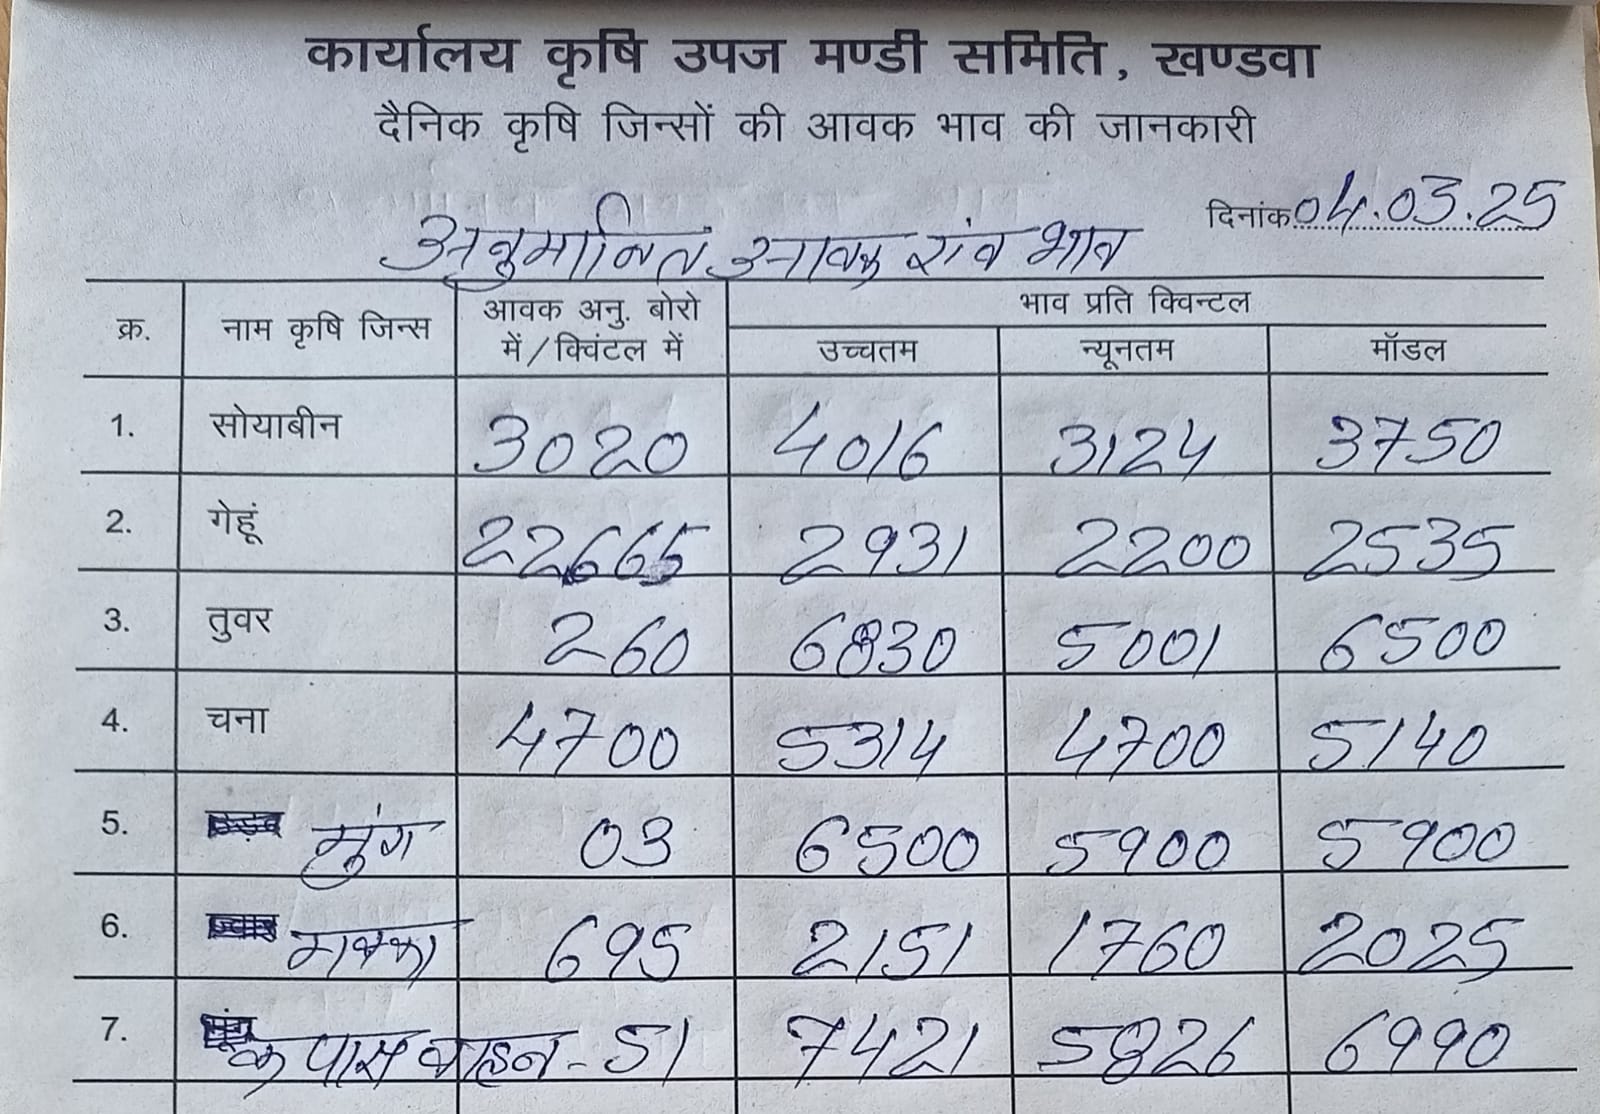 कार्यालय कृषि उपज मण्डी समिति, खण्डवा
दैनिक कृषि जिन्सों की आवक भाव की जानकारी
दिनांक 04.03.25
अनुमानित आवक एंव भाव
क्र. नाम कृषि जिन्स आवक अनु. बोरो में/क्विंटल में भाव प्रति क्विन्टल
उच्चतम न्यूनतम मॉडल
1. सोयाबीन 3020 4016 3124 3750
2. गेहूं 22665 2931 2200 2535
3. तुवर 260 6830 5001 6500
4. चना 4700 5314 4700 5140
5. मुंग 03 6500 5900 5900
6. मक्का 695 2151 1760 2025
7. कपास वाहन - 51 7421 5826 6990